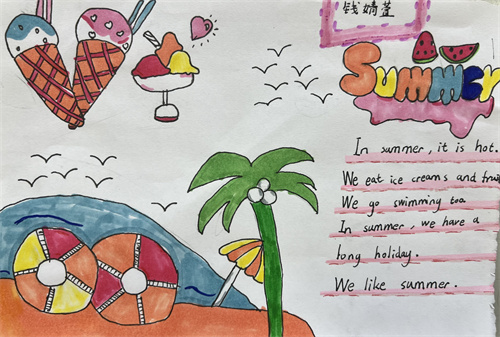 钱婧萱
Summer
In summer, it is hot.
We eat ice creams and fruit
We go swimming too
In summer, we have a
long holiday.
We like summer.